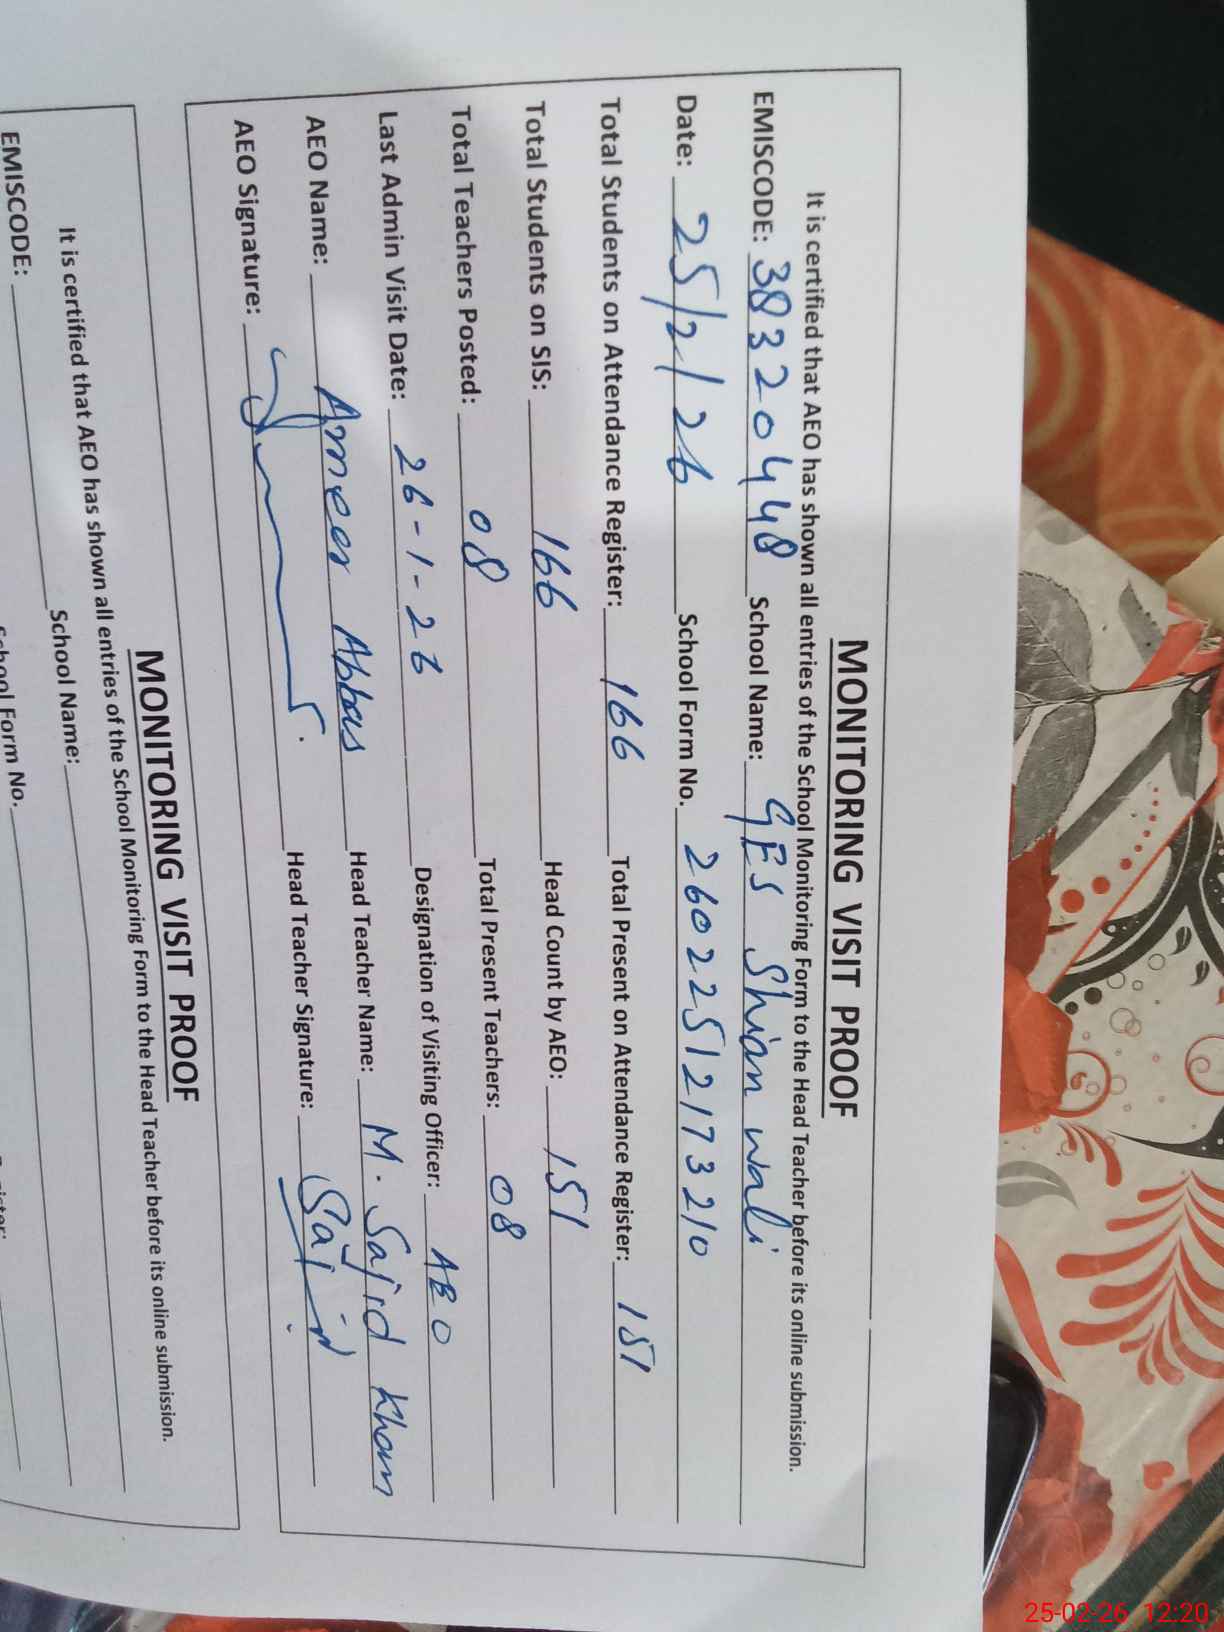 MONITORING VISIT PROOF
It is certified that AEO has shown all entries of the School Monitoring Form to the Head Teacher before its online submission.
EMISCODE: 38320448 School Name: GES Shianwali
Date: 25/2/26 School Form No. 26022512173210
Total Students on Attendance Register: 166 Total Present on Attendance Register: 151
Total Students on SIS: 166 Head Count by AEO: 151
Total Teachers Posted: 08 Total Present Teachers: 08
Last Admin Visit Date: 26-1-26 Designation of Visiting Officer: AEO
AEO Name: Ameer Abbas Head Teacher Name: M. Sajid Khan
AEO Signature: Head Teacher Signature: Sajid
MONITORING VISIT PROOF
It is certified that AEO has shown all entries of the School Monitoring Form to the Head Teacher before its online submission.
EMISCODE: School Name:
School Form No.
25-02-26 12:20